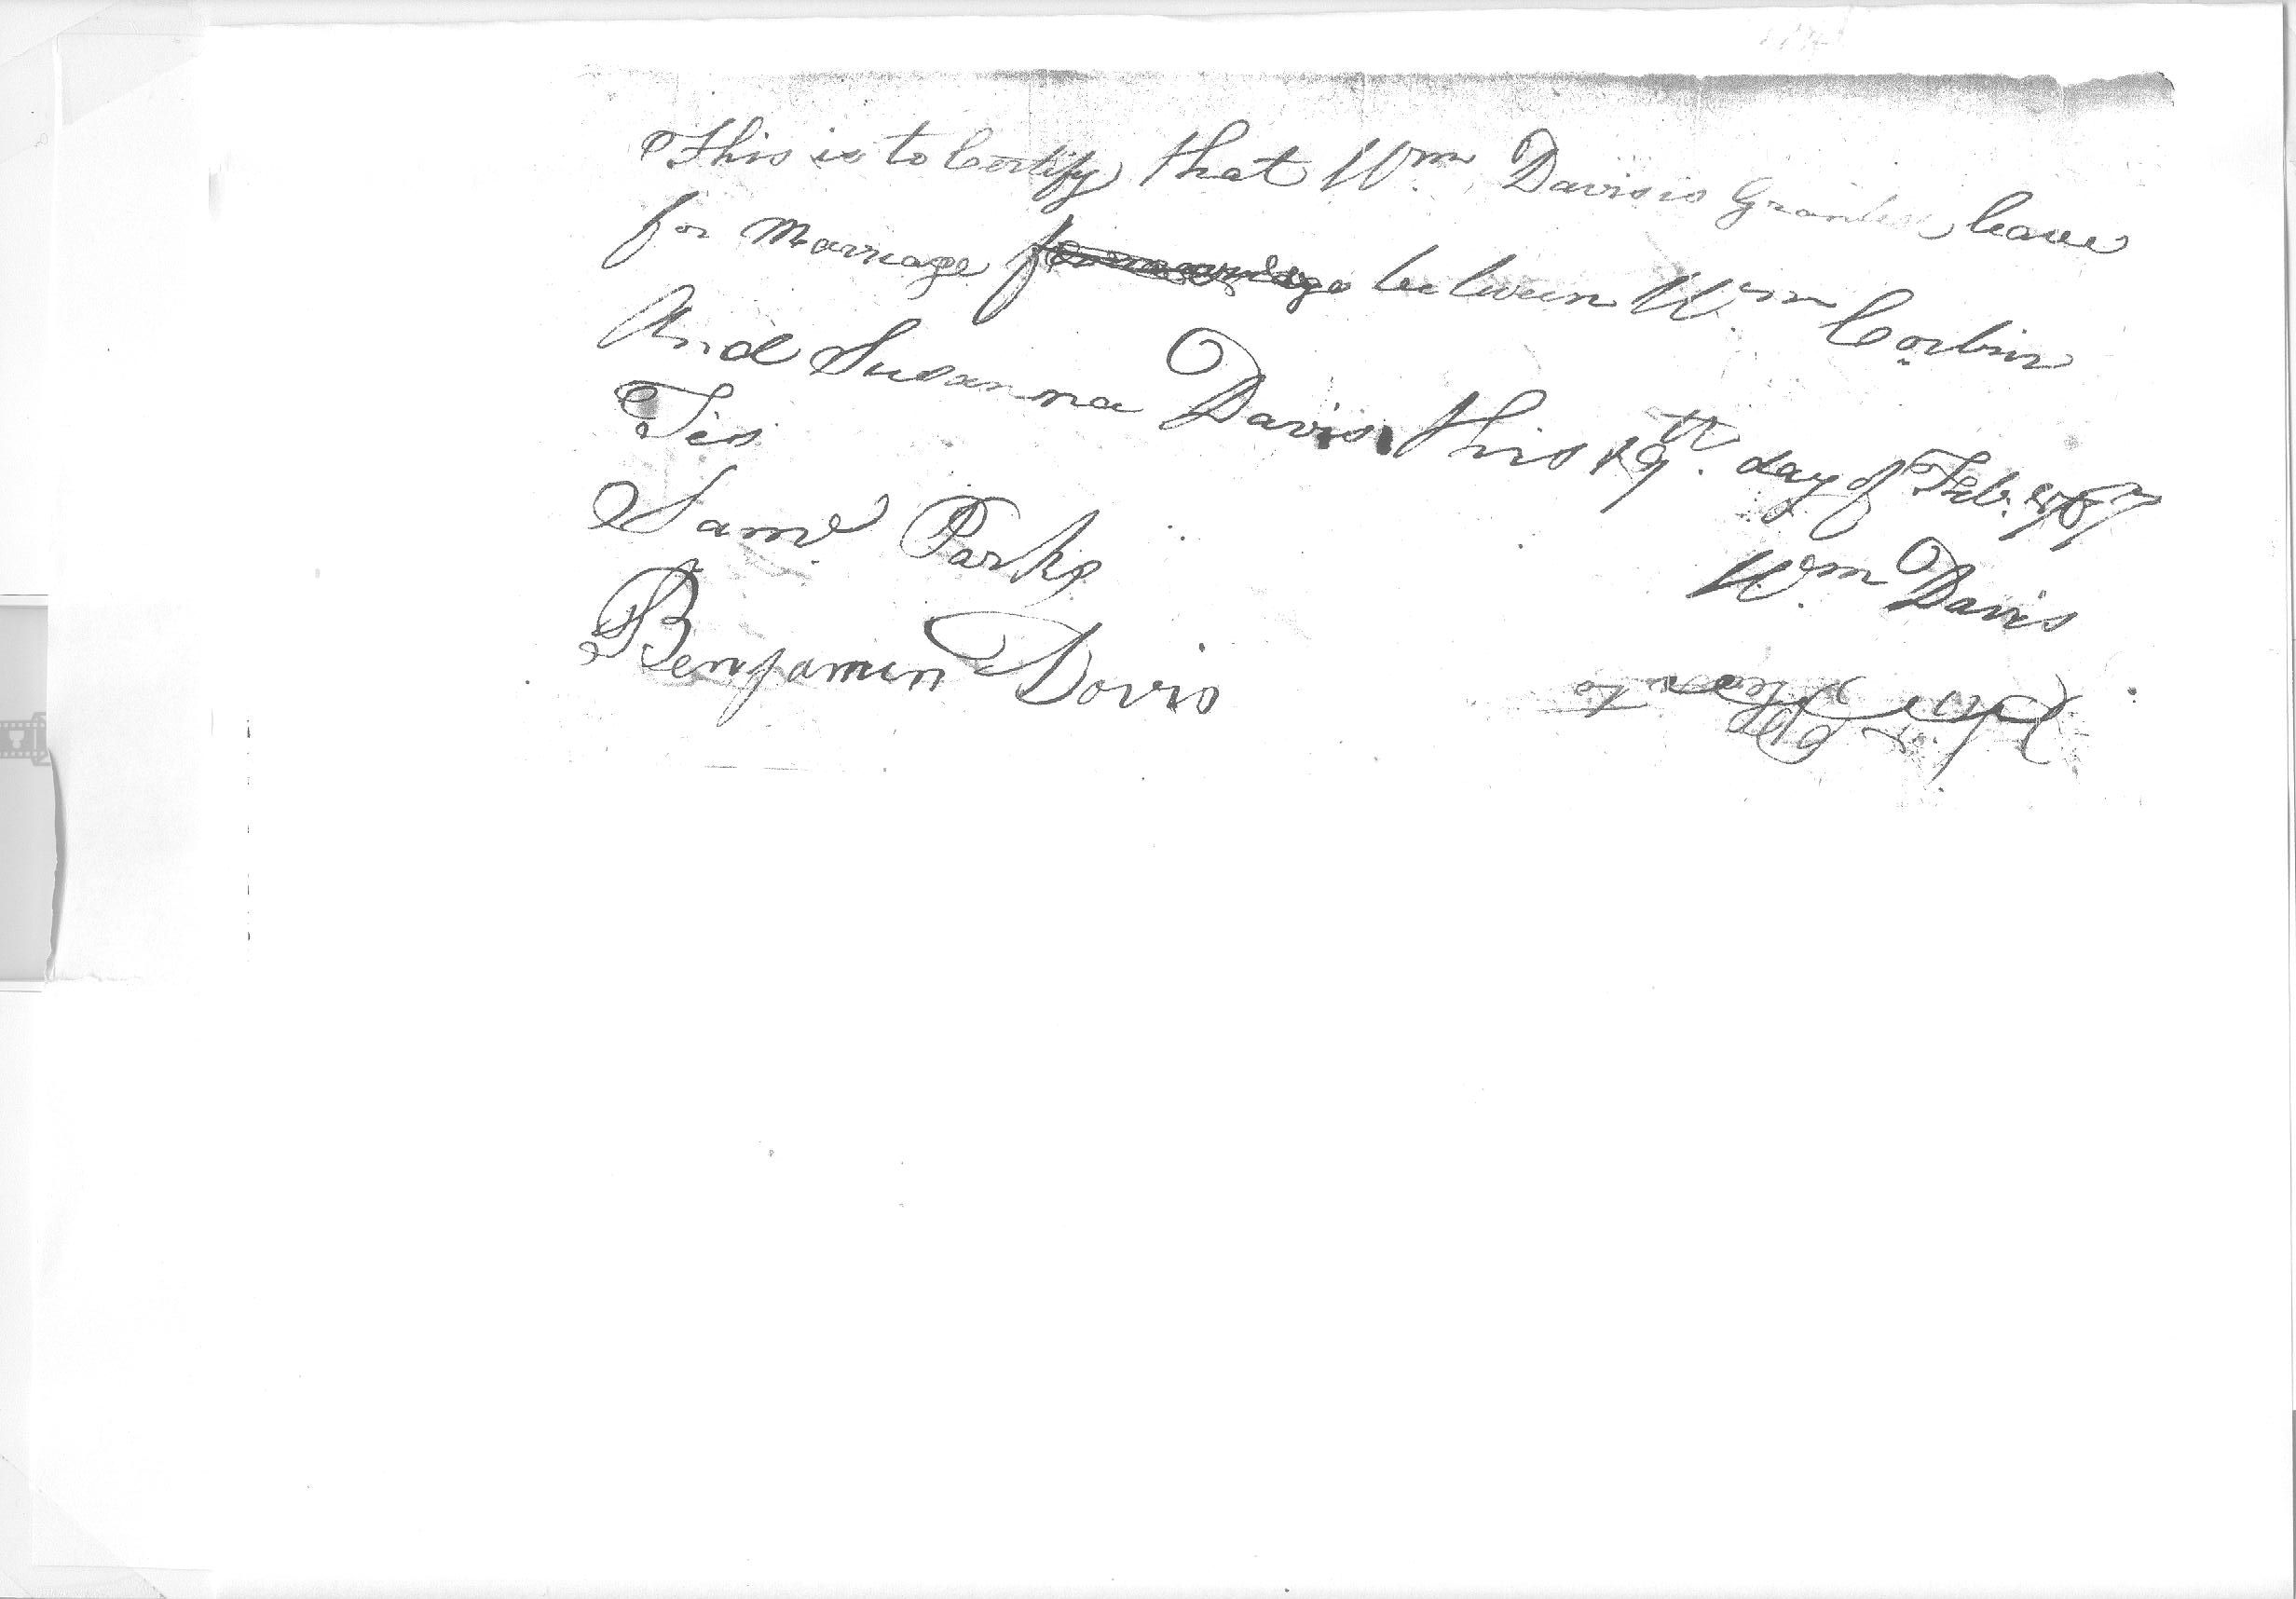 This is to Certify that Wm. Davis is Granted leave
for Marriage for marriage between Wm. Corbin
And Susanna Davis this 19th. day of Feb.
Tes
Saml. Parks
Wm. Davis
Benjamin Davis